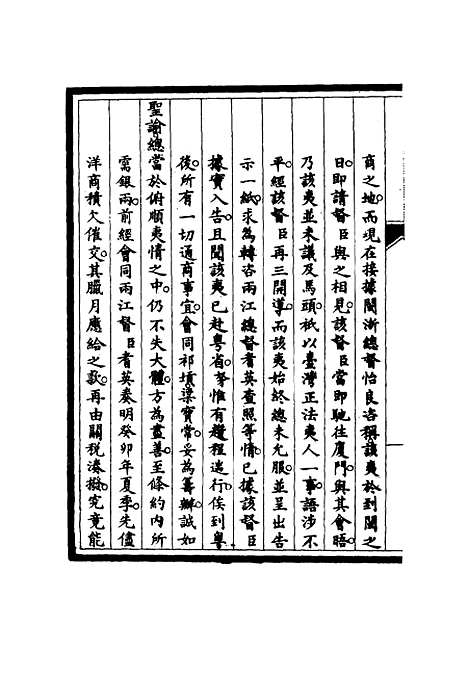 商之地而現在接據閩浙總督怡良咨稱該夷於到閩之
日即請督臣與之相見該督臣當即馳往廈門與其會晤
乃該夷並未議及馬頭祇以臺灣正法夷人一事語涉不
平經該督臣再三開導而該夷始終總未允服並呈出告
示一紙求為轉咨兩江總督耆英查照等情已據該督臣
據實入告且聞該夷已赴粵省等惟有趲程遄行俟到粵
後所有一切通商事宜會同祁𡎴梁寶常妥為籌辦誠如
聖諭總當於俯順夷情之中仍不失大體方為盡善至條約內所
需銀兩前經會同兩江督臣耆英奏明癸卯年夏季先儘
洋商積欠催交其臘月應給之款再由關稅湊撥究竟能